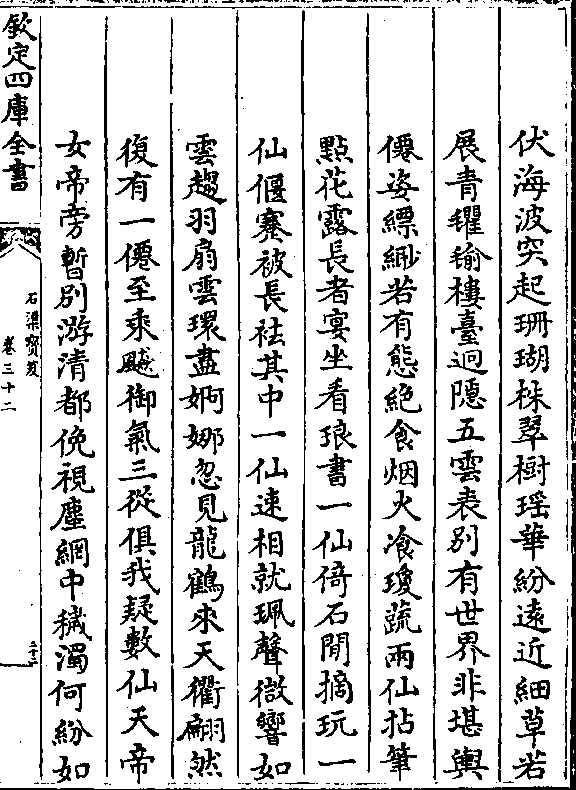 伏海波突起珊瑚株翠樹瑶華紛遠近細草若
展青氍毹樓臺迥隱五雲表別有世界非堪輿
僊姿縹緲若有態絶食烟火飡瓊蔬兩仙拈筆
點花露長者宴坐看琅書一仙倚石閒摘玩一
仙偃蹇被長袪其中一仙速相就珮聲微響如
雲趨羽扇雲環盡婀娜忽見龍鶴來天衢翩然
復有一僊至乘飈御氣三從俱我疑數仙天帝
女帝旁暫別游清都俛視塵網中穢濁何紛如
欽定四庫全書
石渠寳笈
卷三十二